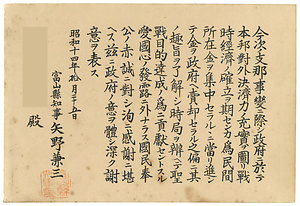 今次支那事變ニ際シ政府ニ於テ
本邦對外決濟力ノ充實ヲ圖リ戰
時經濟ノ確立ヲ期センガ爲民間
所在金ヲ集中セラルルニ當リ進ン
デ金ヲ政府ニ賣却セラレタルハ偏ニ其ノ
趣旨ヲ了解シ時局ヲ辨ヘ聖
戰目的達成ノ爲ニ貢獻セントスル
愛國心ノ發露ニ外ナラズ國民奉
公ノ赤誠ニ對シ洵ニ感謝ニ堪
ヘズ玆ニ政府ノ意ヲ體シ深ク謝
意ヲ表ス
昭和十四年 月二十五日
富山縣知事 矢野兼三
殿